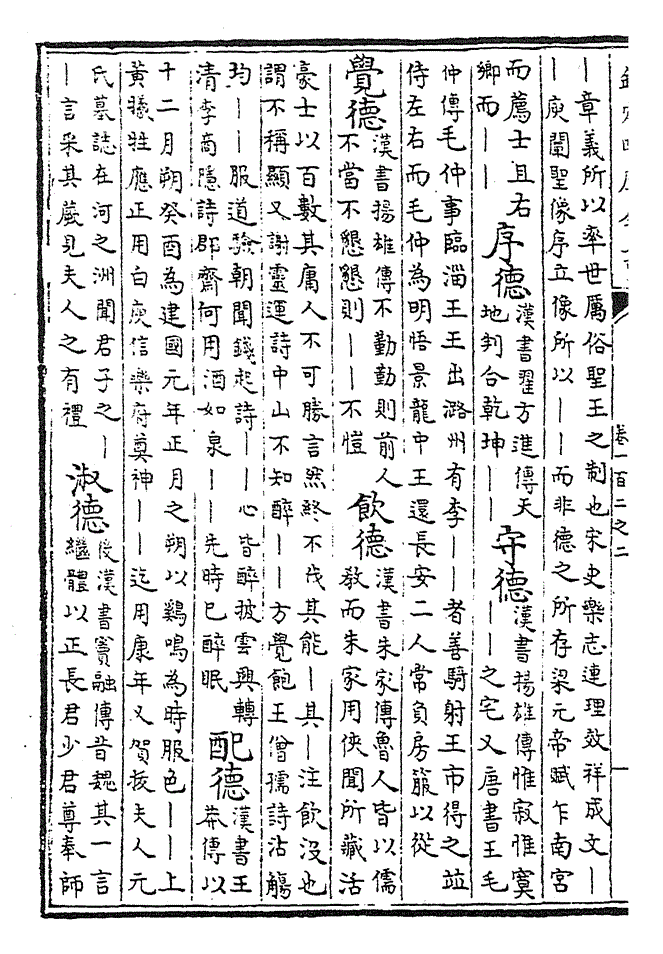 卷一百二之二
｜章義所以率世厲俗聖王之制也宋史樂志連理效祥成文｜
｜庾闡聖像序立像所以｜｜而非德之所存梁元帝賦乍南宮
而薦士且右
鄉而｜｜
序德
漢書翟方進傳天
地判合乾坤｜｜
守德
漢書揚雄傳惟寂惟寞
｜｜之宅又唐書王毛
仲傳毛仲事臨淄王王出潞州有李｜｜者善騎射王市得之並
侍左右而毛仲為明悟景龍中王還長安二人常負房箙以從
覺德
漢書揚雄傳不勤勤則前人
不當不懇懇則｜｜不愷
飲德
漢書朱家傳魯人皆以儒
教而朱家用俠聞所藏活
豪士以百數其庸人不可勝言然終不伐其能｜其｜注飲没也
謂不稱顯又謝靈運詩中山不知醉｜｜方覺飽王僧孺詩沾觴
均｜｜服道驗朝聞錢起詩｜｜心皆醉披雲興轉
清李商隱詩郡齋何用酒如泉｜｜先時已醉眠
配德
漢書王
莽傳以
十二月朔癸酉為建國元年正月之朔以鷄鳴為時服色｜｜上
黃犧牲應正用白庾信樂府奠神｜｜迄用康年又賀拔夫人元
氏墓誌在河之洲聞君子之｜
｜言采其蕨見夫人之有禮
淑德
後漢書竇融傳昔魏其一言
繼體以正長君少君尊奉師